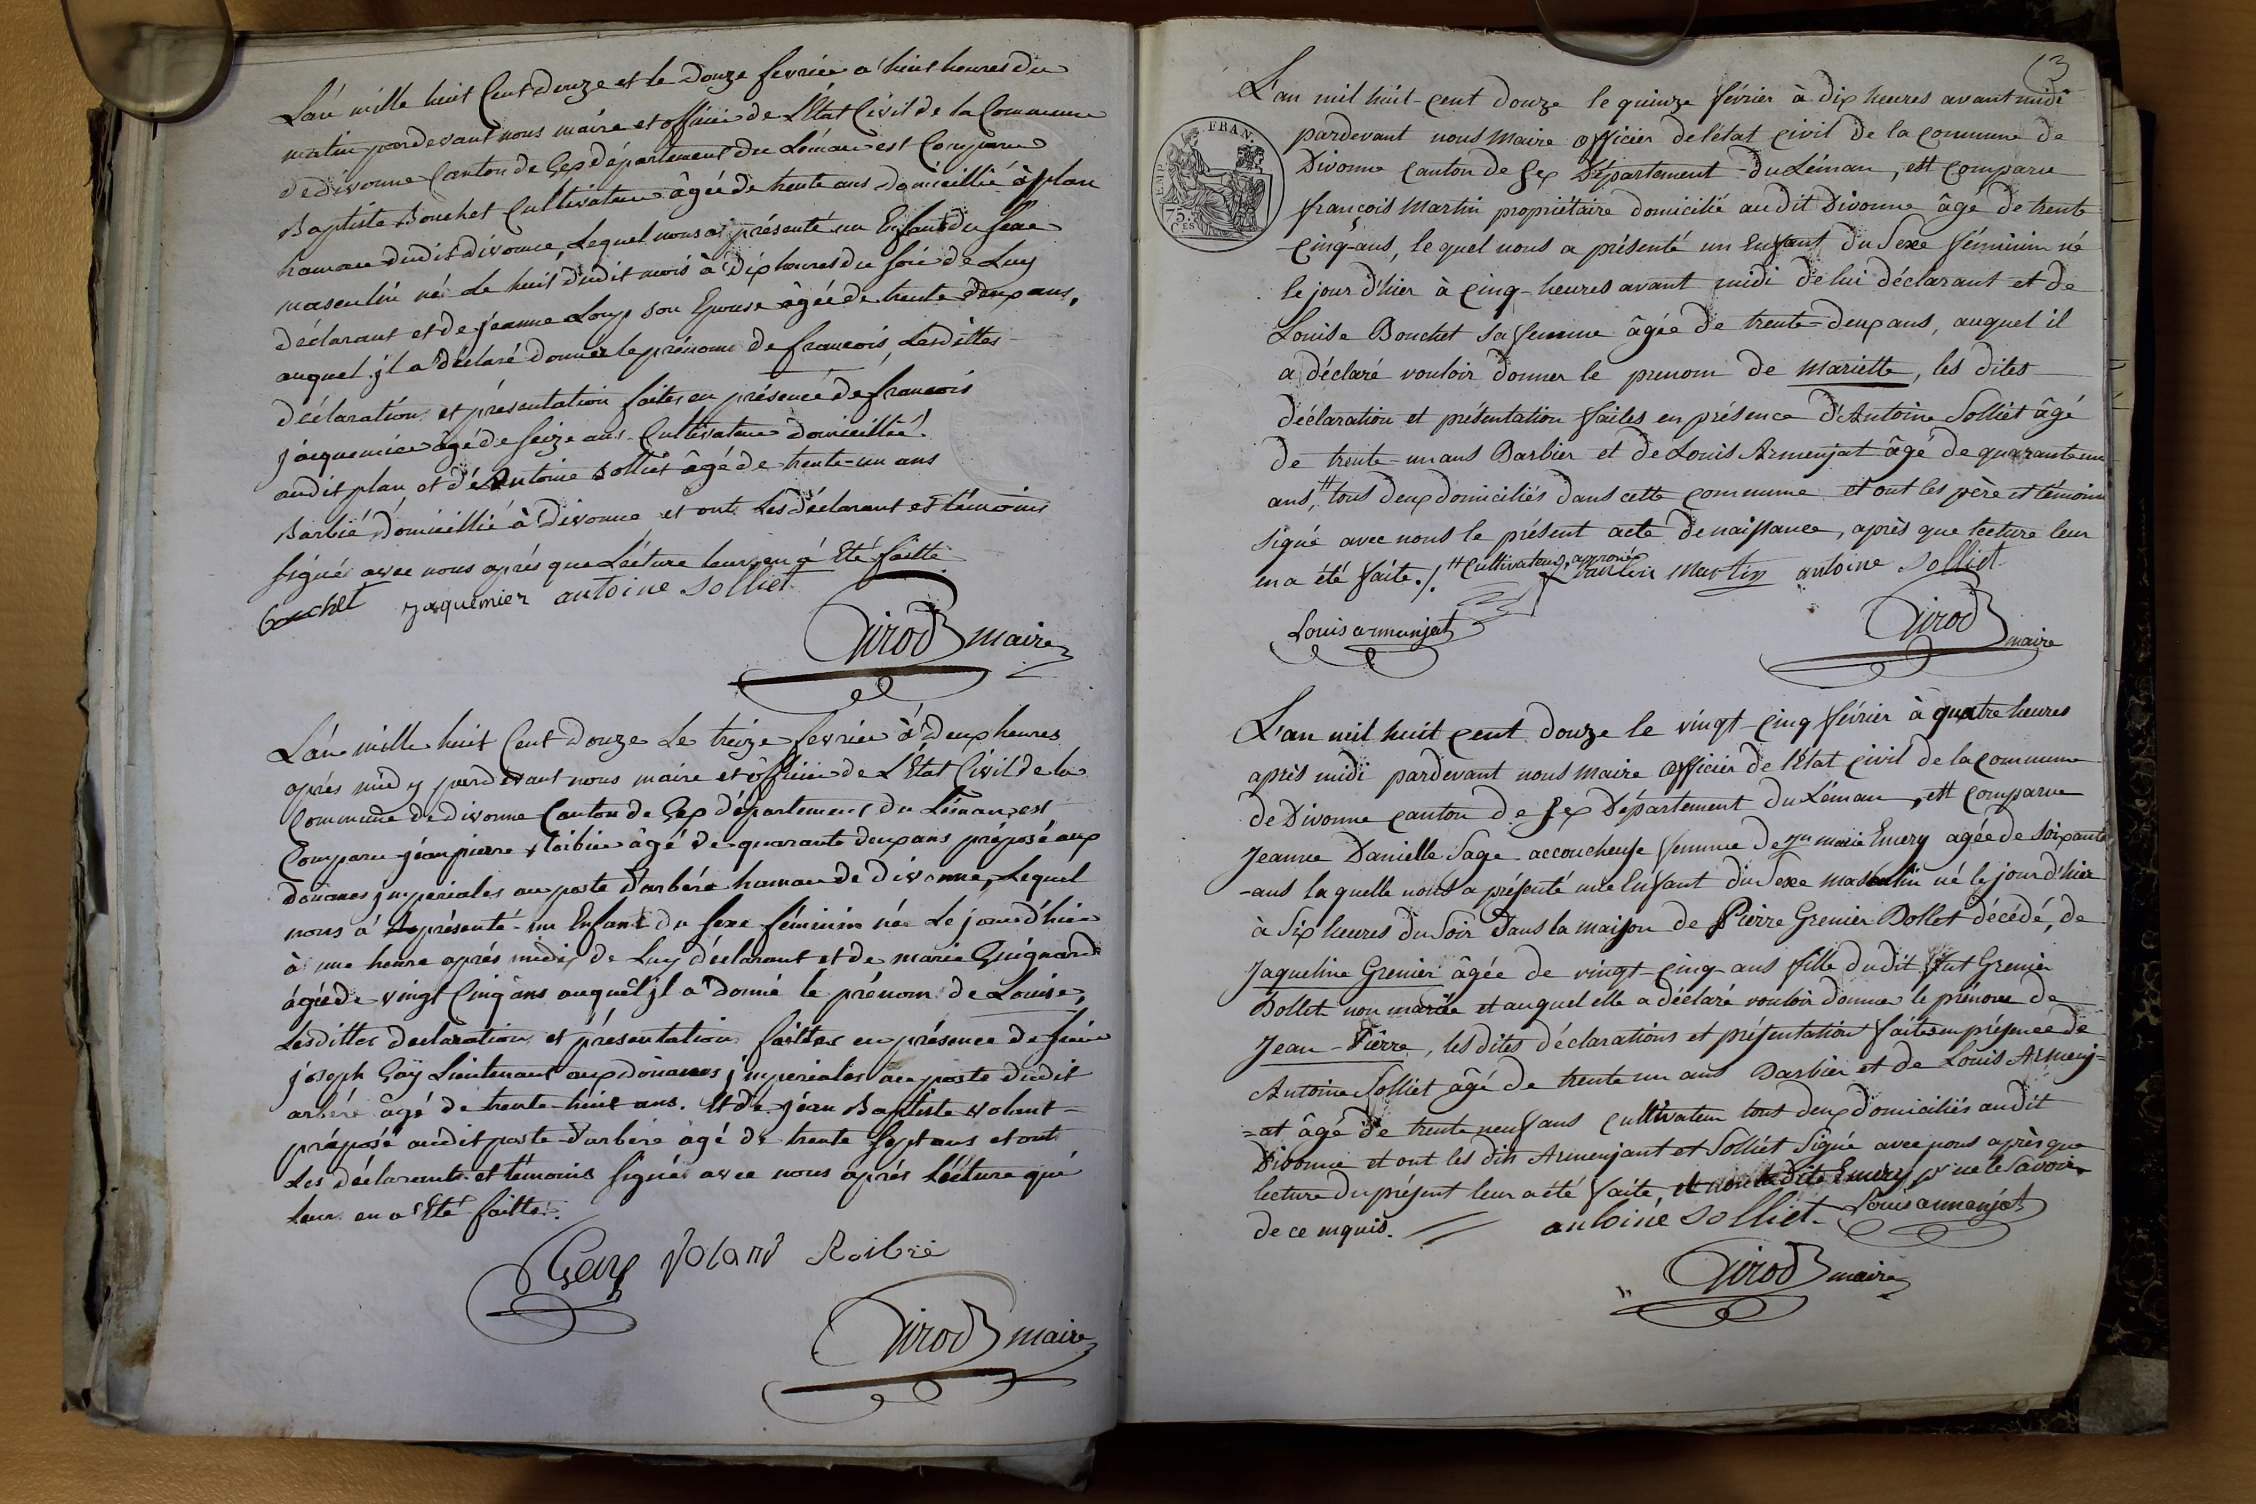 L'an mille huit Cent douze et le douze fevrier a huit heures du
matin pardevant nous maire et officier de L'État Civil de la Commune
de divonne Canton de Gex département du Léman est Comparu
Baptiste Bouchet Cultivateur âgée de trente ans domicillié à plan
hamau dudit divonne, Lequel nous a présenté un Enfant du sexe
masculin né Le huit dudit mois à dix heures du soir de Luy
déclarant et de jeanne Loup son Epouse âgée de trente deux ans,
auquel jl a déclaré donner le prénom de francois, Lesdittes
déclaration et présentation faites en présence de francois
jacquemier âgé de seize ans Cultivateur domicillié
audit plan, et d'Antoine Solliet âgé de trente-un ans
Barbié domicillié à Divonne et ont Les déclarant et témoins
signés avec nous après que Lécture leur en a Eté faitte
bouchet jaquemier antoine solliet
Girod maire
L'an mille huit Cent douze Le treize fevrier à deux heures
après midy pardevant nous maire et officier de L'État Civil de la
Commune de divonne Canton de Gex département du Léman, est
Comparu jéan pierre âgé de quarante deux ans préposé aux
douanes jmperiales au poste d'arbére hamau de divonne, Lequel
nous á présenté un Enfant du sexe féminin née Le jour d'hier
à une heure après midi, de Luy déclarant et de marie Guignard
âgée de vingt Cinq ans auquel jl a donné le prénom de Louise,
Lesdittes declaration et présentation faittes en présence de
joseph Gay Lieutenant aux douanes jmperiales au poste dudit
arbére âgé de trente-huit ans. Et de jéan Baptiste volant-
préposé audit poste d'arbére âgé de trente sept ans et ont
Les déclarants et témoins signés avec nous après Lécture qui
Leur en a Eté faitte.
Gay Volant Roibié
Girod maire
13
L'an mil huit-cent douze le quinze février à dix heures avant midi
pardevant nous Maire Officier de l'état civil de la commune de
Divonne canton de Gex Département du Léman, est comparu
françois Martin propriétaire domicilié audit Divonne âgé de trente
cinq-ans, lequel nous a présenté un Enfant du Sexe féminin né
le jour d'hier à cinq-heures avant midi de lui déclarant et de
Louise Bouchet sa femme âgée de trente-deux ans, auquel il
a déclaré vouloir donner le prenom de Mariette, les dites
déclaration et présentation faites en présence d'Antoine Solliet âgé
de trente-un ans Barbier et de Louis Armenjat âgé de quarante un
ans, # tous deux domiciliés dans cette commune et ont les père et témoins
signé avec nous le présent acte de naissance, après que lecture leur
en a été faite./. # Cultivateur, approuvé
Martin antoine solliet
Louis armanjat
Girod maire
FRAN
75
C.ES
L'an mil huit cent douze le vingt-cinq février à quatre heures
après midi pardevant nous Maire Officier de l'Etat civil de la commune
de Divonne canton de Gex Département du Léman, est comparue
Jeanne Danielle Sage accoucheuse femme de marie Emery agée de soixante
-ans laquelle nous a présenté une Enfant du Sexe masculin né le jour d'hier
à six heures du Soir dans la maison de Pierre Grenier Dollet décédé, de
Jaqueline Grenier âgée de vingt-cinq-ans fille dudit fut Grenier
Dollet non mariée et auquel elle a déclaré vouloir donner le prénom de
Jean-Pierre, les dites déclarations et présentation faites en présence de
Antoine Solliet âgé de trente un ans Barbier et de Louis Armenj=
=at âgé de trente neuf ans cultivateur tous deux domiciliés audit
Divonne et ont les dits Armenjant et Solliet signé avec nous après que
lecture du présent leur a été faite, et non la dite Emery pr ne le savoir
de ce enquis. antoine solliet Louis armanjat
Girod maire